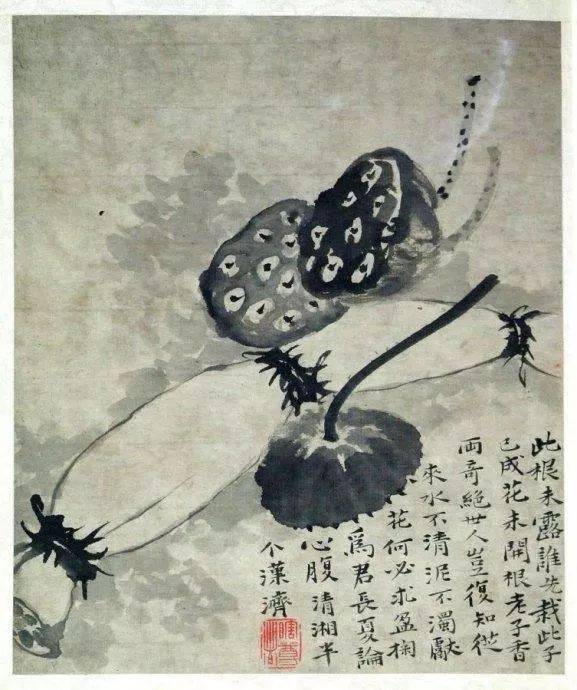 此根未露誰先栽此子
已成花未開根老子香
兩奇絕世人豈復知從
來水不清泥不濁獻
花何必求盈掬
爲君長夏論
心腹清湘半
个漢濟
瞎尊者